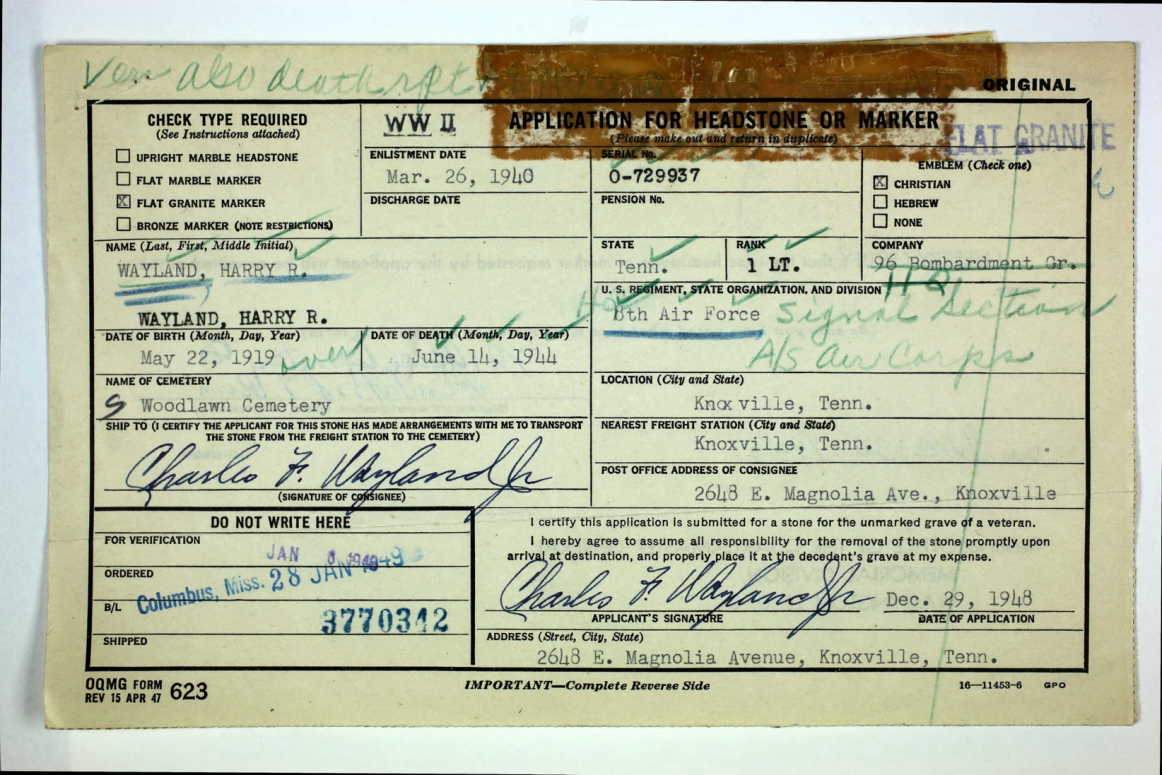 Ver. also death rpt
ORIGINAL
CHECK TYPE REQUIRED
(See Instructions attached)
☐ UPRIGHT MARBLE HEADSTONE
☐ FLAT MARBLE MARKER
☒ FLAT GRANITE MARKER
☐ BRONZE MARKER (NOTE RESTRICTIONS)
WW II
APPLICATION FOR HEADSTONE OR MARKER
(Please make out and return in duplicate)
FLAT GRANITE
ENLISTMENT DATE
Mar. 26, 1940
DISCHARGE DATE
SERIAL No.
O-729937
PENSION No.
EMBLEM (Check one)
☒ CHRISTIAN
☐ HEBREW
☐ NONE
NAME (Last, First, Middle Initial)
WAYLAND, HARRY R.
WAYLAND, HARRY R.
STATE
Tenn.
RANK
1 LT.
COMPANY
96 Bombardment Gr.
HQ
U. S. REGIMENT, STATE ORGANIZATION, AND DIVISION
8th Air Force
Signal Section
A/S Air Corps
DATE OF BIRTH (Month, Day, Year)
May 22, 1919
over
DATE OF DEATH (Month, Day, Year)
June 14, 1944
NAME OF CEMETERY
Woodlawn Cemetery
LOCATION (City and State)
Knoxville, Tenn.
SHIP TO (I CERTIFY THE APPLICANT FOR THIS STONE HAS MADE ARRANGEMENTS WITH ME TO TRANSPORT
THE STONE FROM THE FREIGHT STATION TO THE CEMETERY)
Charles F. Wayland Jr
(SIGNATURE OF CONSIGNEE)
NEAREST FREIGHT STATION (City and State)
Knoxville, Tenn.
POST OFFICE ADDRESS OF CONSIGNEE
2648 E. Magnolia Ave., Knoxville
DO NOT WRITE HERE
FOR VERIFICATION
JAN
ORDERED
Columbus, Miss. 28 JAN
B/L
3770342
SHIPPED
I certify this application is submitted for a stone for the unmarked grave of a veteran.
I hereby agree to assume all responsibility for the removal of the stone promptly upon
arrival at destination, and properly place it at the decedent's grave at my expense.
Charles F. Wayland Jr Dec. 29, 1948
APPLICANT'S SIGNATURE DATE OF APPLICATION
ADDRESS (Street, City, State)
2648 E. Magnolia Avenue, Knoxville, Tenn.
OQMG FORM
REV 15 APR 47 623
IMPORTANT—Complete Reverse Side
16—11453-6 GPO